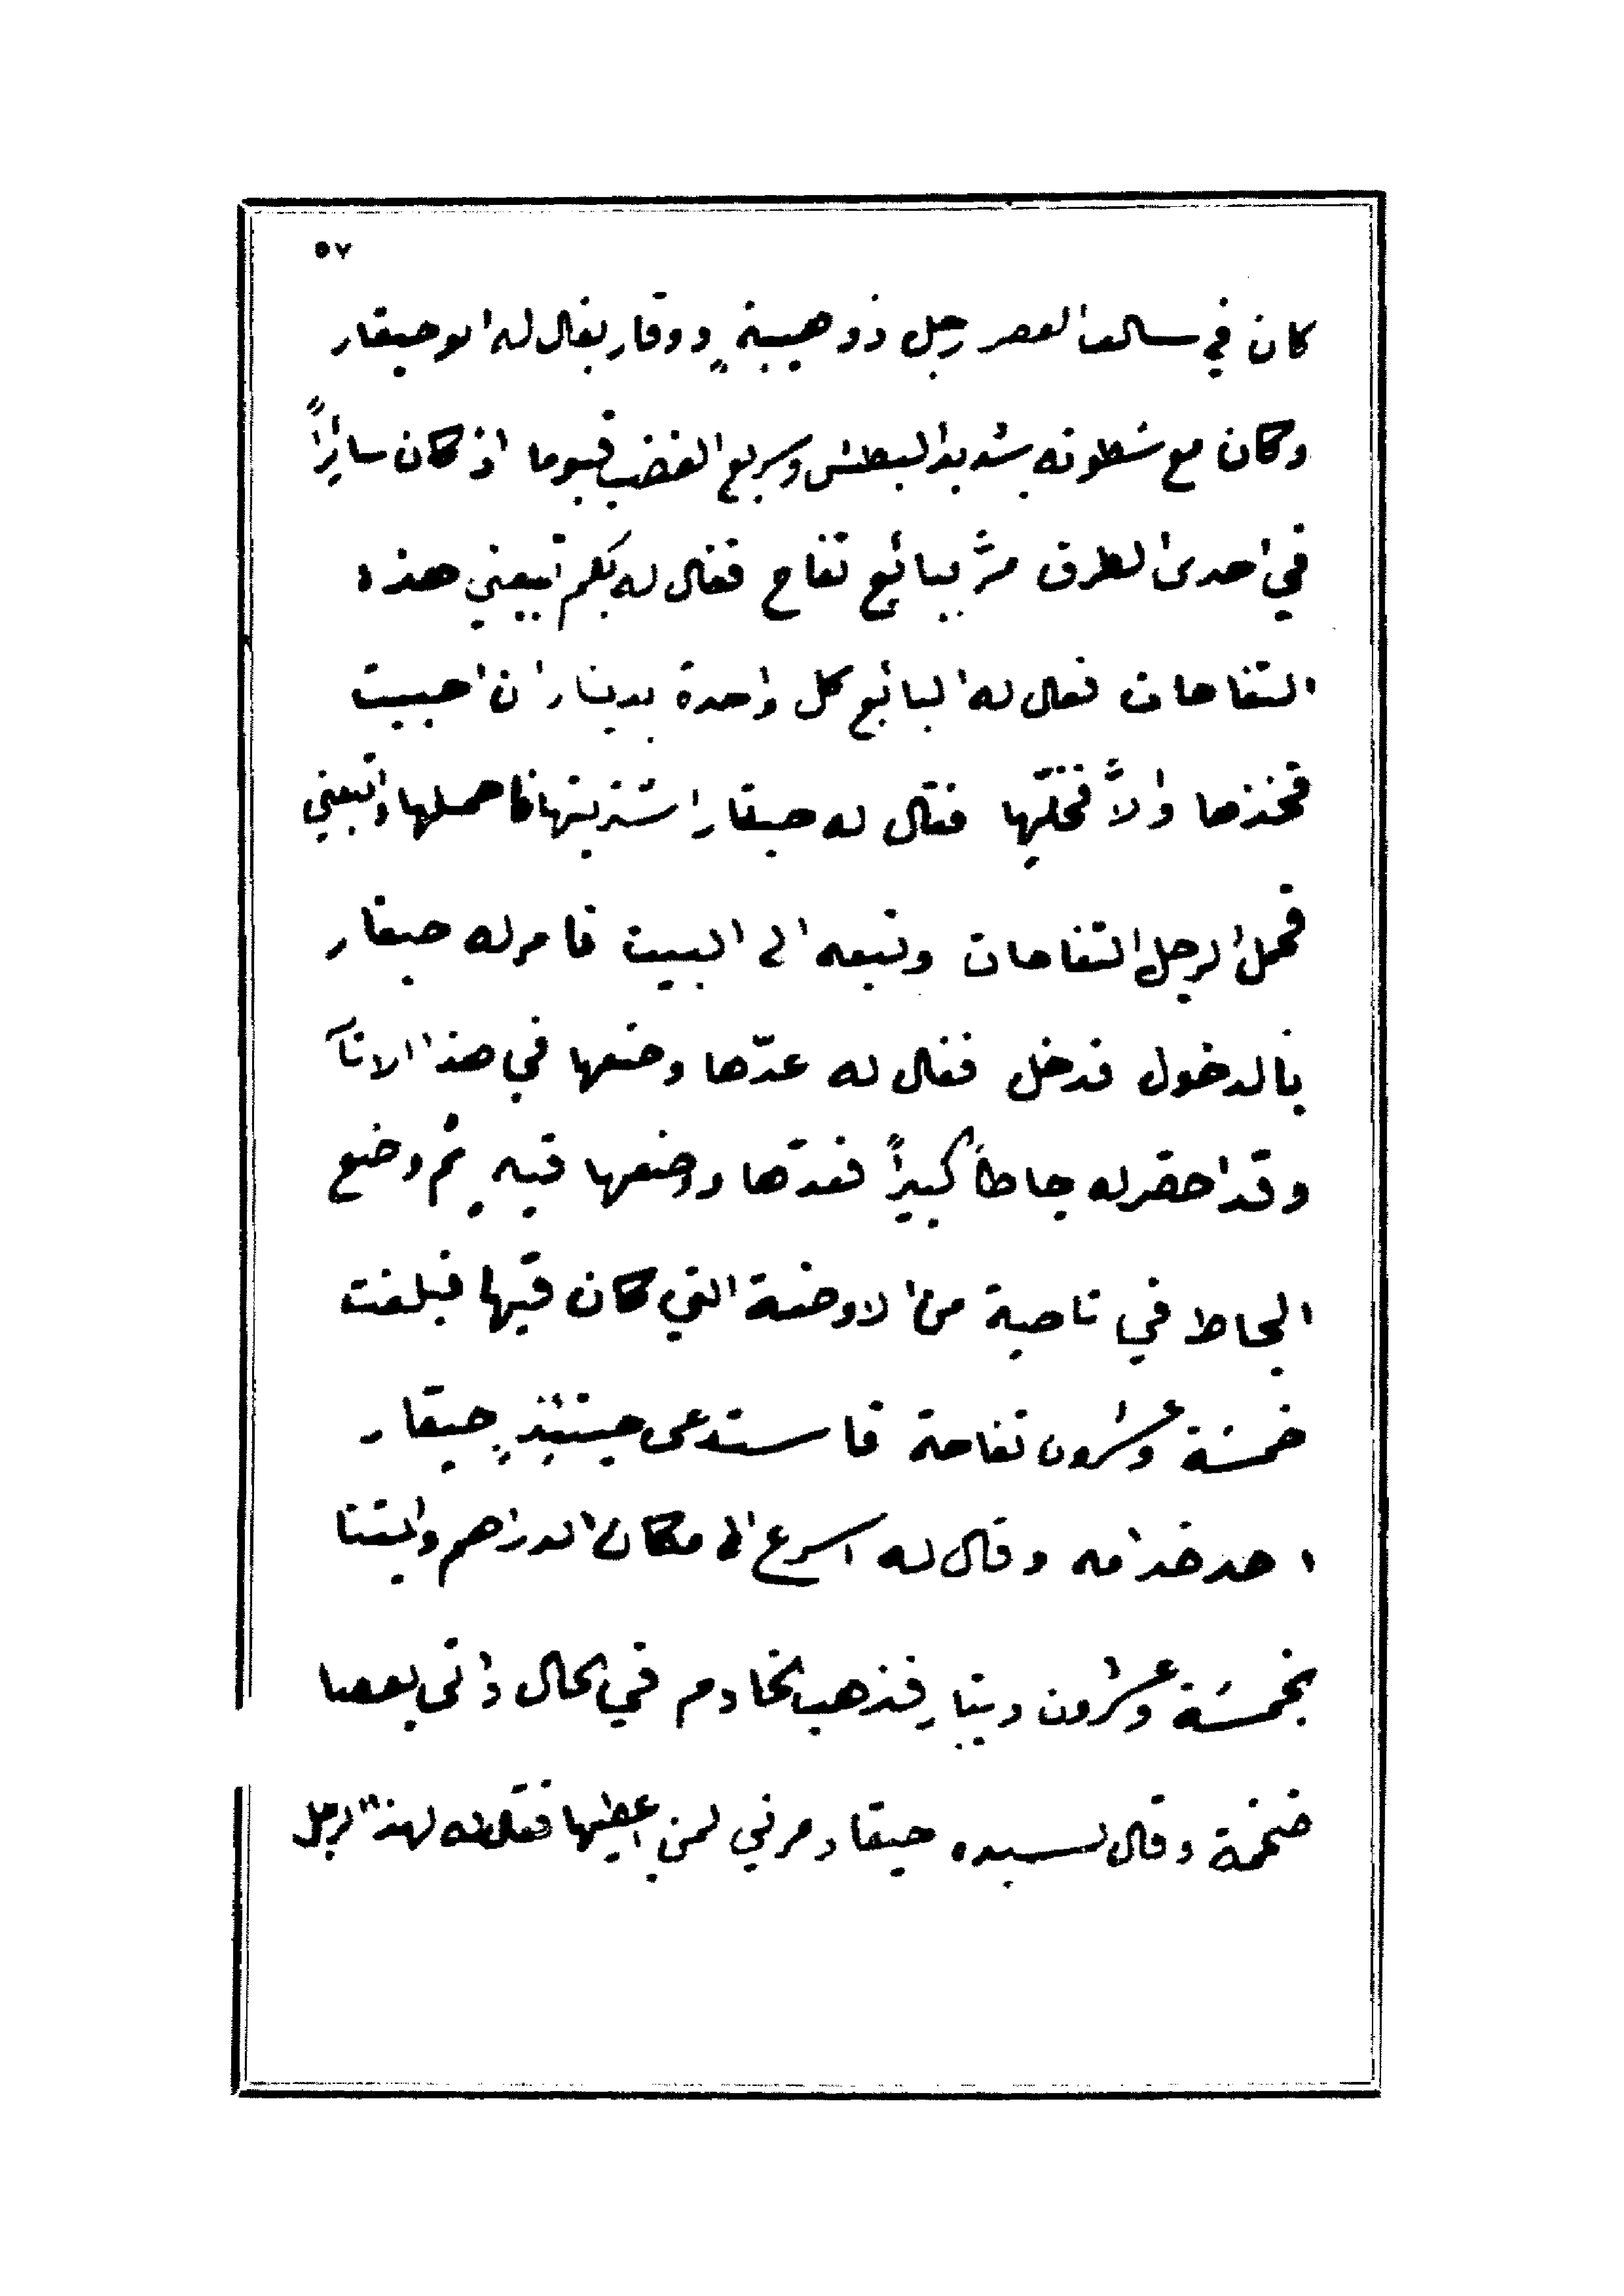 ٥٧
كان في سالف العصر رجل ذو هيبةٍ ووقار يقال له ابو حيقار
وكان مع سطوته شديد البطش وسريع الغضب فيوما اذ كان سائراً
في احدى الطرق مرَّ ببائع تفاح فقال له بكم تبيعني هذه
التفاحات فقال له البائع كل واحدة بدينار ان احببت
فخذها والاَّ فخلّيها فقال له حيقار اشتريتها فاحملها واتبعني
فحمل الرجل التفاحات وتبعه الى البيت فامر له حيقار
بالدخول فدخل فقال له عدّها وضعها في هذا الانآ
وقد احضر له جاطاً كبيراً فعدّها ووضعها فيهِ ثم وضع
الجاط في ناحية من الاوضة التي كان فيها فبلغت
خمسة وعشرون تفاحة فاستدعى حينئذٍ حيقار
احد خدامه وقال له اسرع الى مكان الدراهم وايتنا
بخمسة وعشرون دينارٍ فذهب الخادم في الحال واتى بعصا
ضخمة وقال لسيده حيقار مرني لمن اعطيها فقال له لهذا الرجل